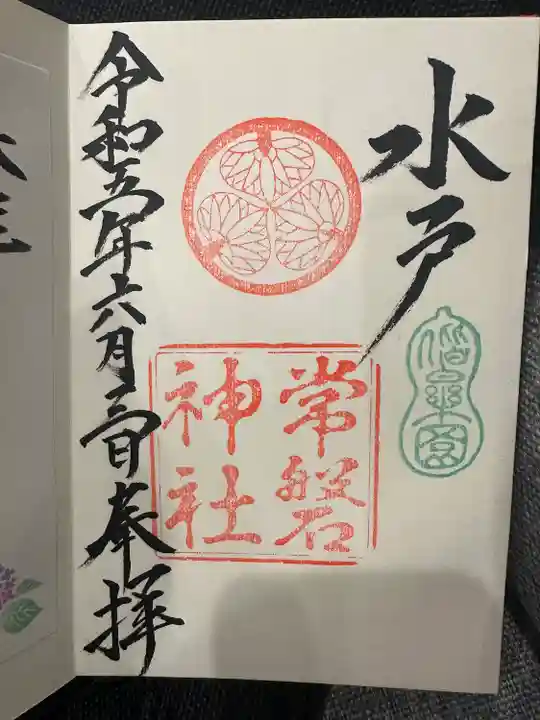 水戸
偕楽園
常磐
神社
令和五年六月二日奉拝